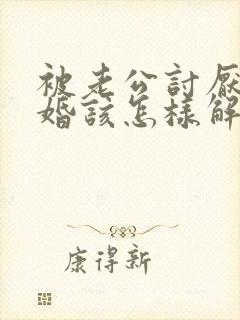 被老公討厭
婚該怎樣解
康得新